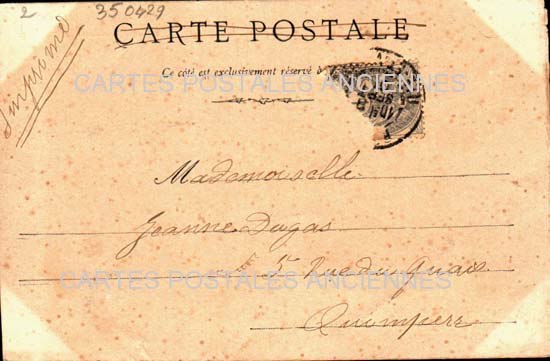 2
350429
CARTE POSTALE
Imprimé
Ce côté est exclusivement réservé à
CARTES POSTALES ANCIENNES
Mademoiselle
Jeanne Dugas
Rue du Quai
CARTES POSTALES ANCIENNES
Quimperé